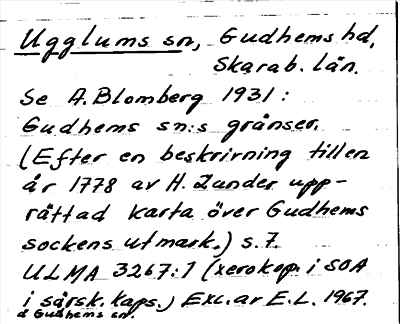 Ugglums sn, Gudhems hd,
Skarab. län.
Se A. Blomberg 1931:
Gudhems sn:s gränser.
(Efter en beskrivning till en
år 1778 av H. Zander upp-
rättad karta över Gudhems
sockens utmark.) s. 7.
ULMA 3267:1 (xerokop. i SOA
i särsk. kaps.) Exc. av E.L. 1967.
d Gudhems sn.